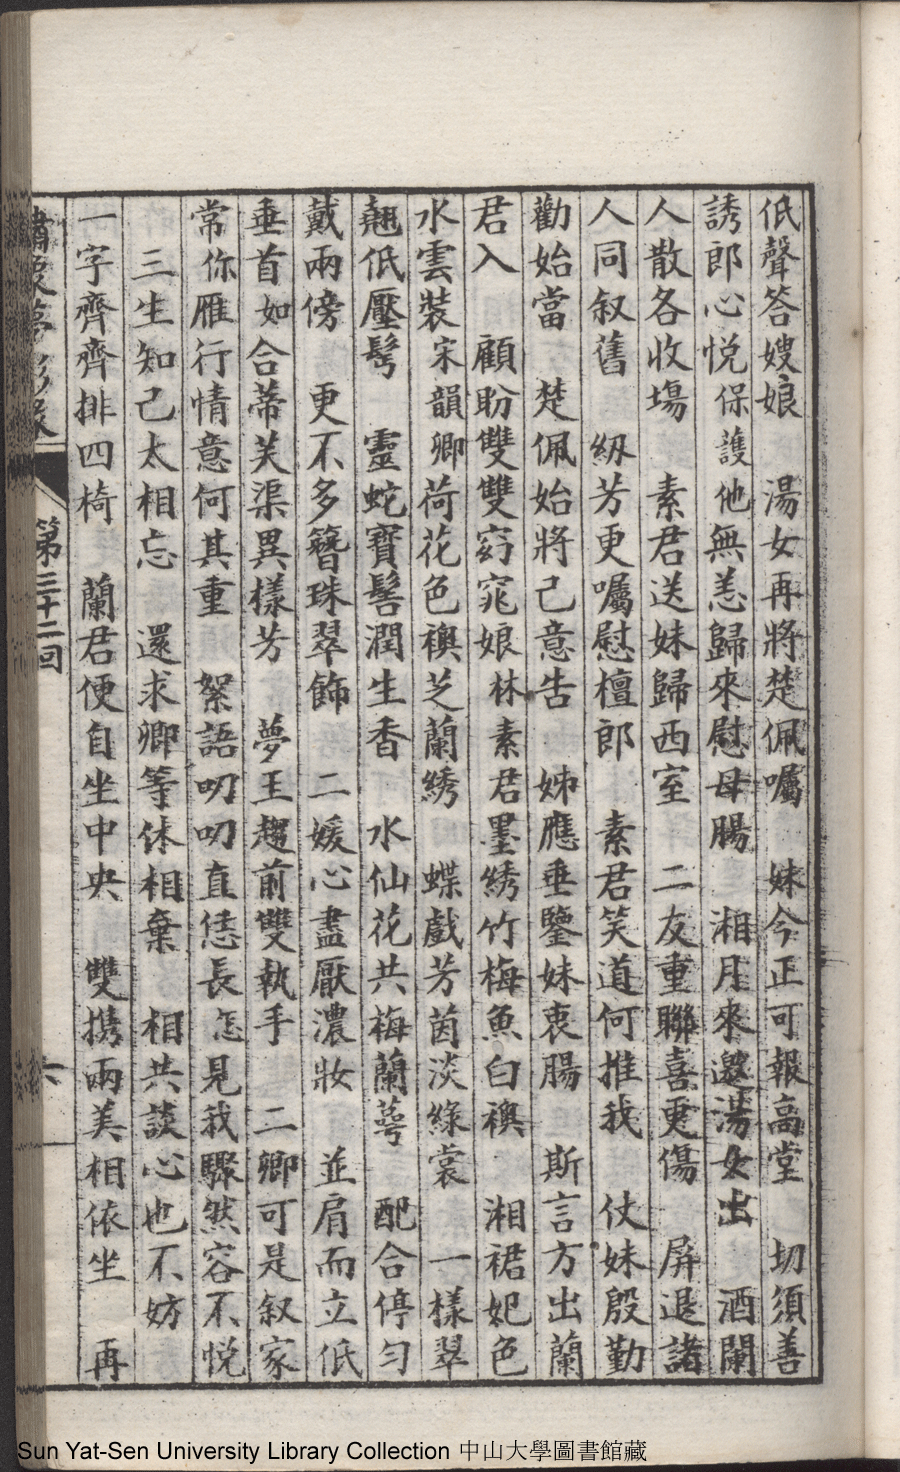 低聲答嫂娘　湯女再將楚佩囑　妹今正可報高堂　切須善
誘郎心悅保護他無恙歸來慰母腸　湘月來邀湯女出　酒闌
人散各收塲　素君送妹歸西室　二友重聯喜更傷　屏退諸
人同叙舊　紉芳更囑慰檀郎　素君笑道何推我　仗妹殷勤
勸始當　楚佩始將己意告　姊應垂鑒妹衷腸　斯言方出蘭
君入　顧盼雙雙窈窕娘林素君墨綉竹梅魚白襖　湘裙妃色
水雲裝宋韻卿荷花色襖芝蘭綉　蝶戲芳茵淡綠裳　一樣翠
翹低壓髩　靈蛇寶髻潤生香　水仙花共梅蘭蕚　配合停匀
戴兩傍　更不多簪珠翠飾　二媛心盡厭濃妝　並肩而立低
垂首如合蒂芙渠異樣芳　夢王趨前雙執手　二卿可是叙家
常你雁行情意何其重　絮語叨叨直恁長怎見我驟然容不悅
三生知己太相忘　還求卿等休相棄　相共談心也不妨
一字齊齊排四椅　蘭君便自坐中央　雙携兩美相依坐　再
第三十二回
六
Sun Yat-Sen University Library Collection 中山大學圖書館藏